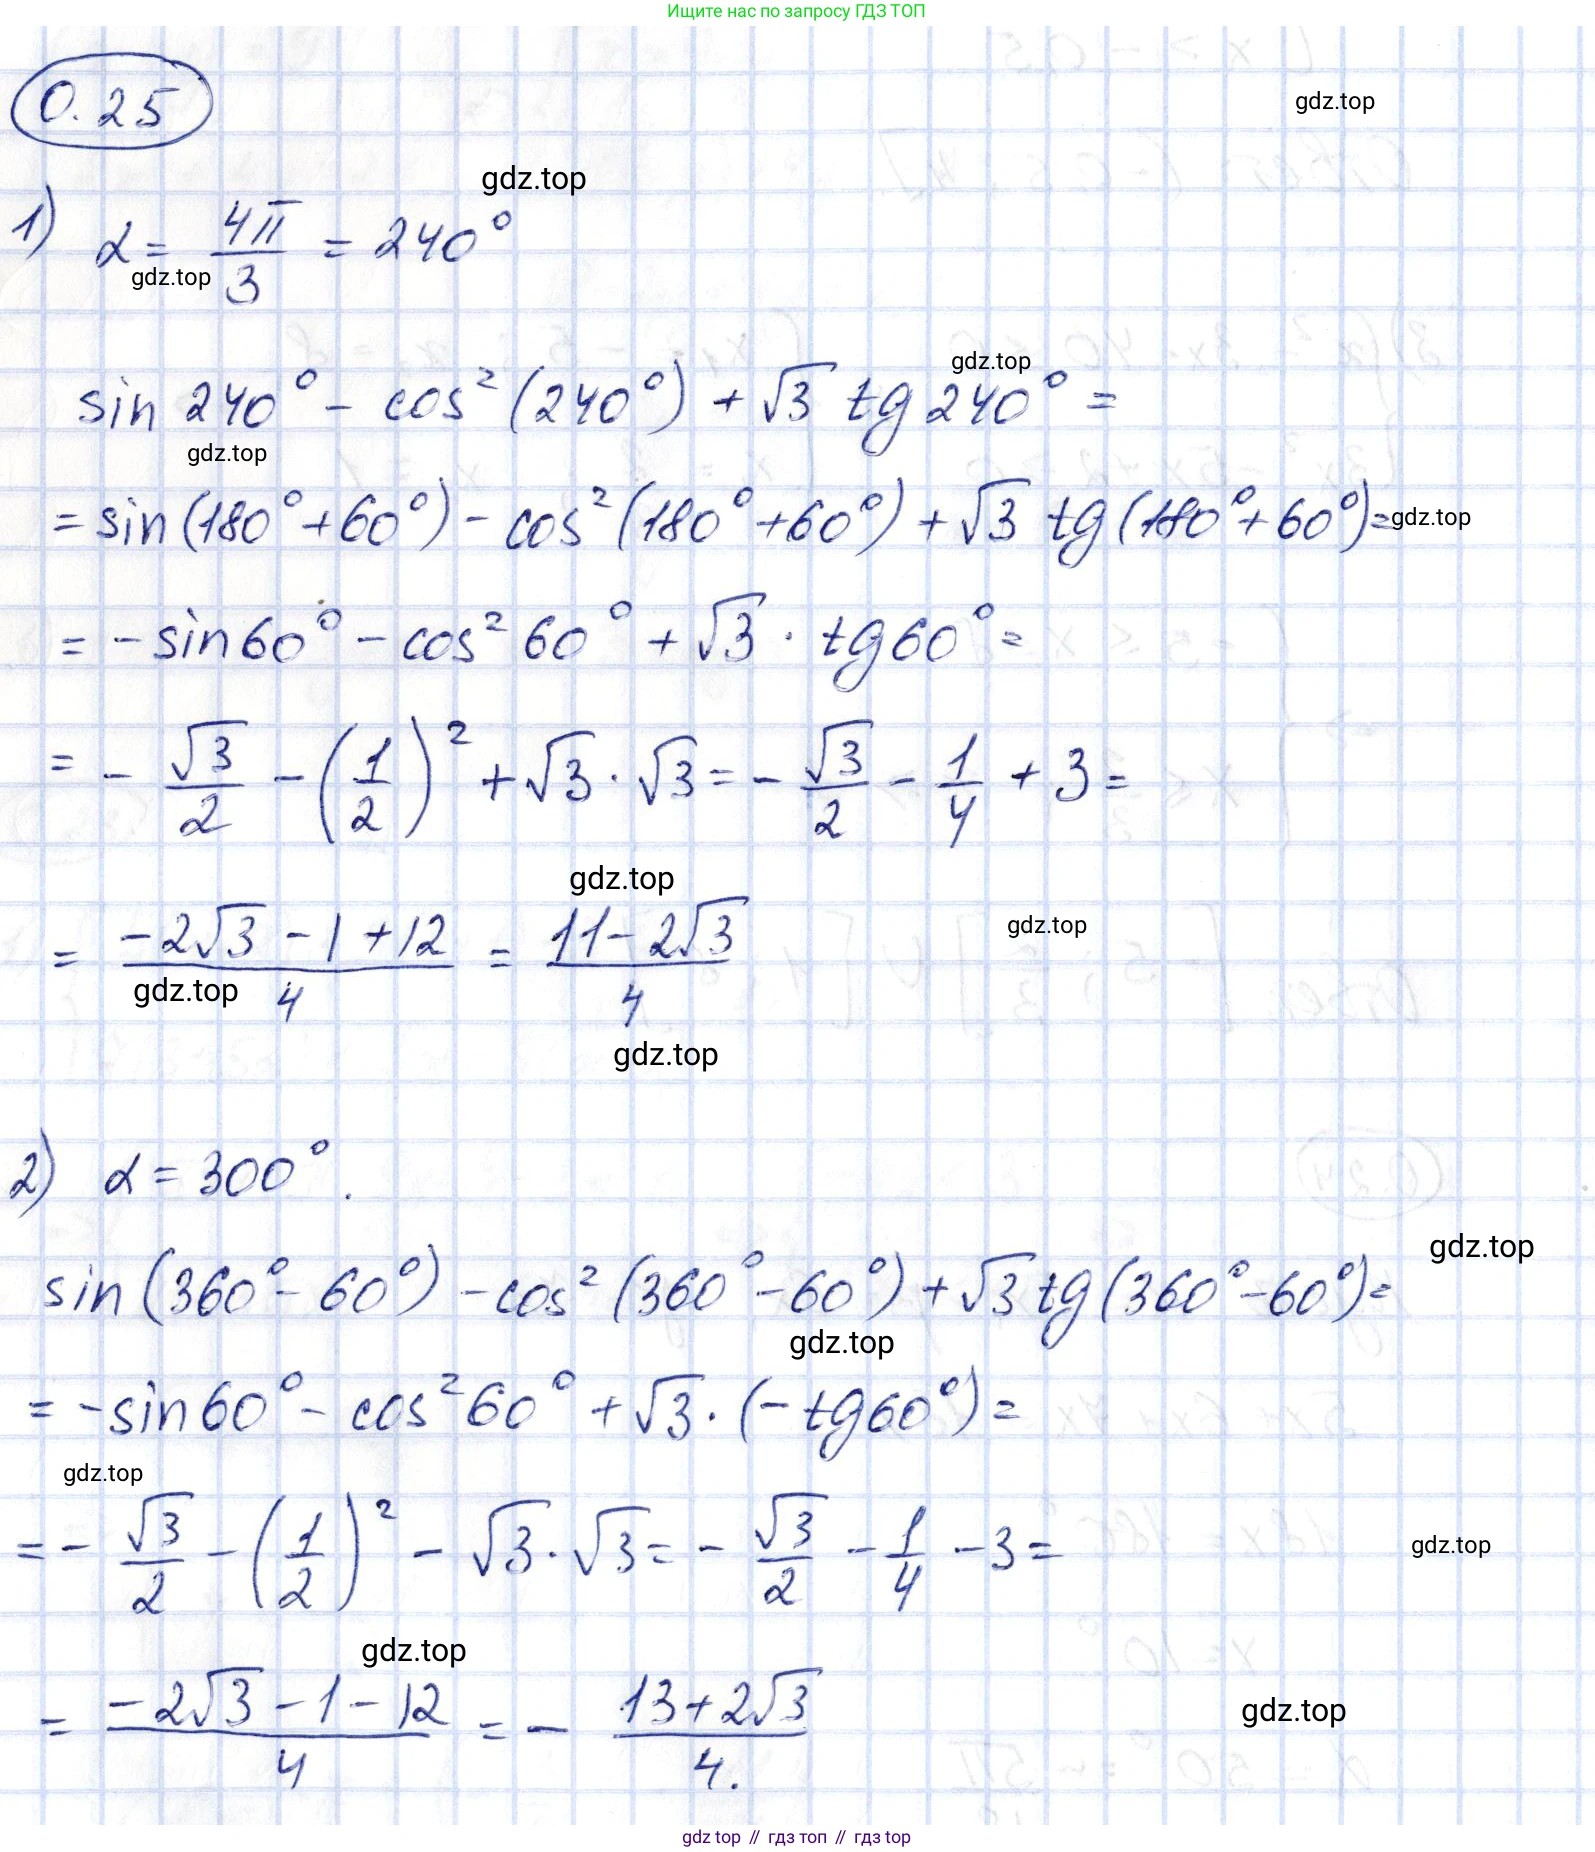 Ищите нас по запросу ГДЗ ТОП
0.25
gdz.top
gdz.top
1) α = 4π/3 = 240°
gdz.top
gdz.top
sin 240° - cos² (240°) + √3 tg 240° =
gdz.top
= sin (180° + 60°) - cos² (180° + 60°) + √3 tg (180° + 60°) =
gdz.top
= - sin 60° - cos² 60° + √3 · tg 60° =
= - √3/2 - (1/2)² + √3 · √3 = - √3/2 - 1/4 + 3 =
gdz.top
gdz.top
= (-2√3 - 1 + 12)/4 = (11 - 2√3)/4
gdz.top
gdz.top
2) α = 300°.
gdz.top
sin (360° - 60°) - cos² (360° - 60°) + √3 tg (360° - 60°) =
gdz.top
= - sin 60° - cos² 60° + √3 · (- tg 60°) =
gdz.top
= - √3/2 - (1/2)² - √3 · √3 = - √3/2 - 1/4 - 3 =
gdz.top
gdz.top
= (-2√3 - 1 - 12)/4 = - (13 + 2√3)/4.
gdz.top
gdz top // гдз топ // gdz top